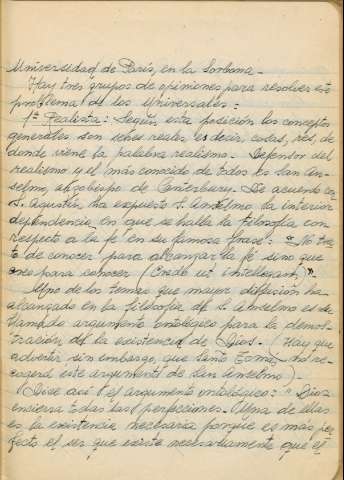 Universidad de París, en la Sorbona.-
Hay tres grupos de opiniones para resolver este
problema de los Universales:
1ª Realista: Según esta posición los conceptos
generales son seres reales, es decir, cosas, res, de
donde viene la palabra realismo. Defensor del
realismo y el más conocido de todos es San An-
selmo, arzobispo de Canterbury. De acuerdo con
S. Agustín ha expuesto S. Anselmo la interior
dependencia en que se halla la filosofía con
respecto a la fé en su famosa frase: "No tra-
to de conocer para alcanzar la fé sino que
creo para conocer (Credo ut intellegam)".
Uno de los temas que mayor difusión ha
alcanzado en la filosofía de S. Anselmo es el
llamado argumento ontológico para la demos-
tración de la existencia de Dios. (Hay que
advertir sin embargo, que Santo Tomás no re-
cogerá este argumento de San Anselmo).
Dice así el argumento ontológico: "Dios
encierra todas las perfecciones. Una de ellas
es la existencia necesaria porque es más per-
fecto el ser que existe necesariamente que el